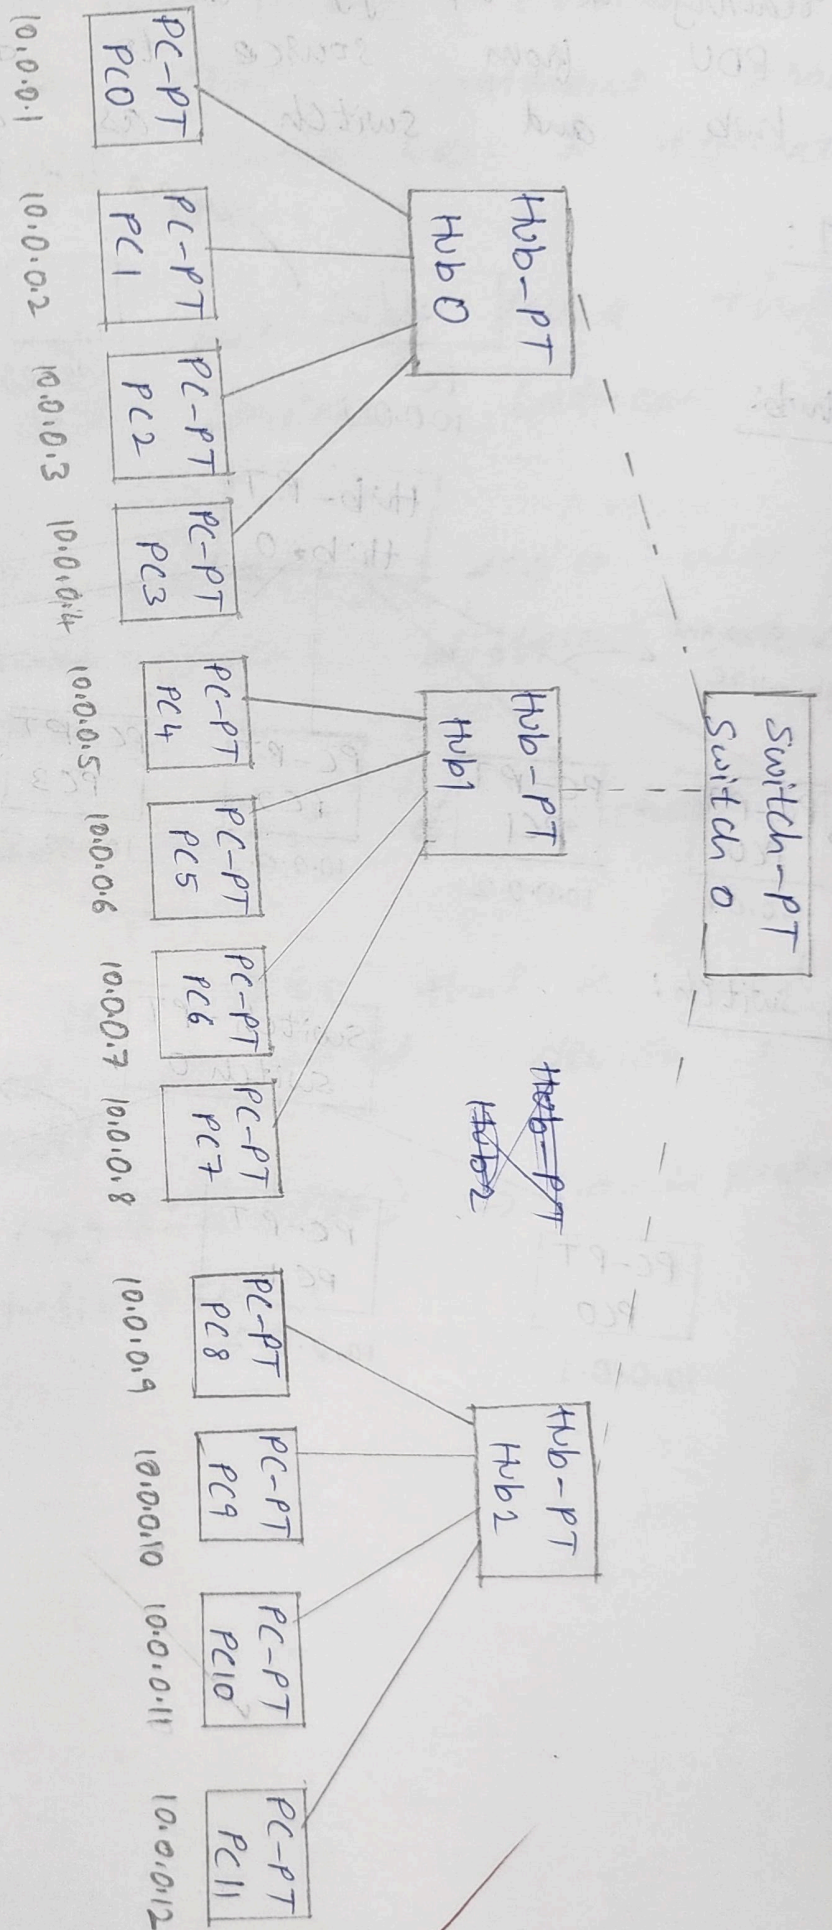 Switch-PT
Switch 0
Hub-PT
Hub 0
Hub-PT
Hub1
Hub-PT
Hub2
Hub-PT
Hub2
PC-PT
PC0
PC-PT
PC1
PC-PT
PC2
PC-PT
PC3
PC-PT
PC4
PC-PT
PC5
PC-PT
PC6
PC-PT
PC7
PC-PT
PC8
PC-PT
PC9
PC-PT
PC10
PC-PT
PC11
10.0.0.1
10.0.0.2
10.0.0.3
10.0.0.4
10.0.0.5
10.0.0.6
10.0.0.7
10.0.0.8
10.0.0.9
10.0.0.10
10.0.0.11
10.0.0.12